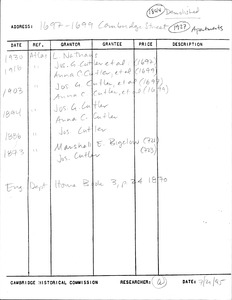 1844 Demolished
ADDRESS: 1697-1699 Cambridge Street 1927 Apartments
DATE REF. GRANTOR GRANTEE PRICE DESCRIPTION
1930 Atlas L. Nathans
1916 " Jos. G. Cutler et al (1696)
Anna C. Cutler, et al (1699)
1903 " Jos. G. Cutler, et al (1697)
Anna C. Cutler, et al (1699)
1894 " Jos. G. Cutler
Anna C. Cutler
1886 " Jos. Cutler
1873 " Marshall E. Bigelow (721)
Jos. Cutler (723)
Eng. Dept House Book 3, p. 24 1870
CAMBRIDGE HISTORICAL COMMISSION RESEARCHER: DATE: